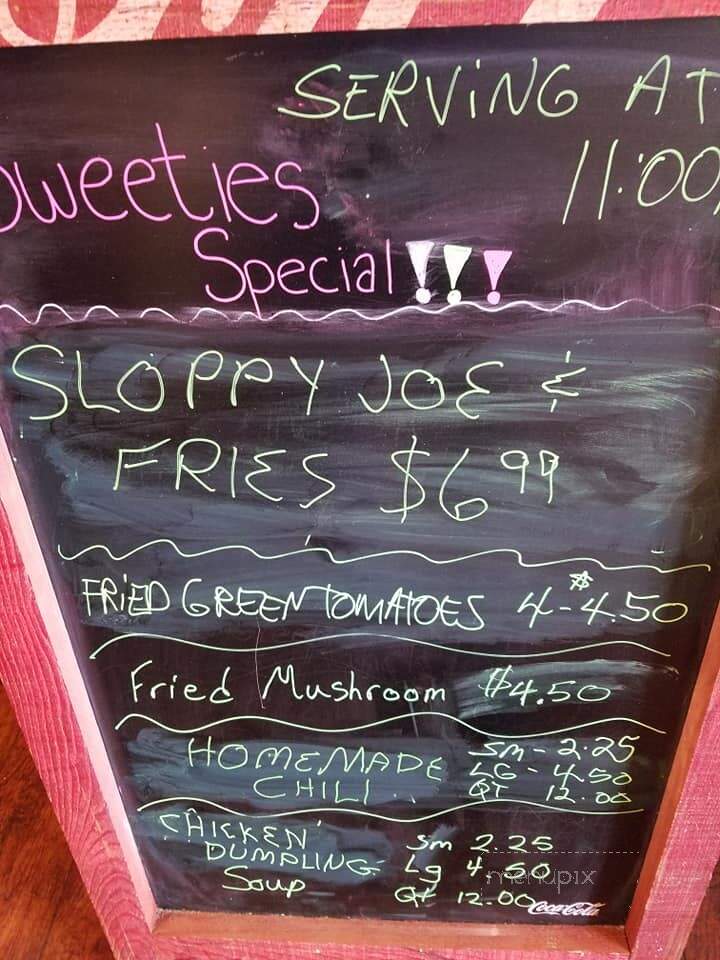 SERVING AT
11:00
Sweeties
Special!!!
SLOPPY JOE &
FRIES $6.99
FRIED GREEN TOMATOES 4-$4.50
Fried Mushroom $4.50
HOMEMADE CHILI..
SM - 2.25
LG - 4.50
QT 12.00
CHICKEN DUMPLING Soup
Sm 2.25
Lg 4.50
Qt 12.00
menupix
Coca-Cola